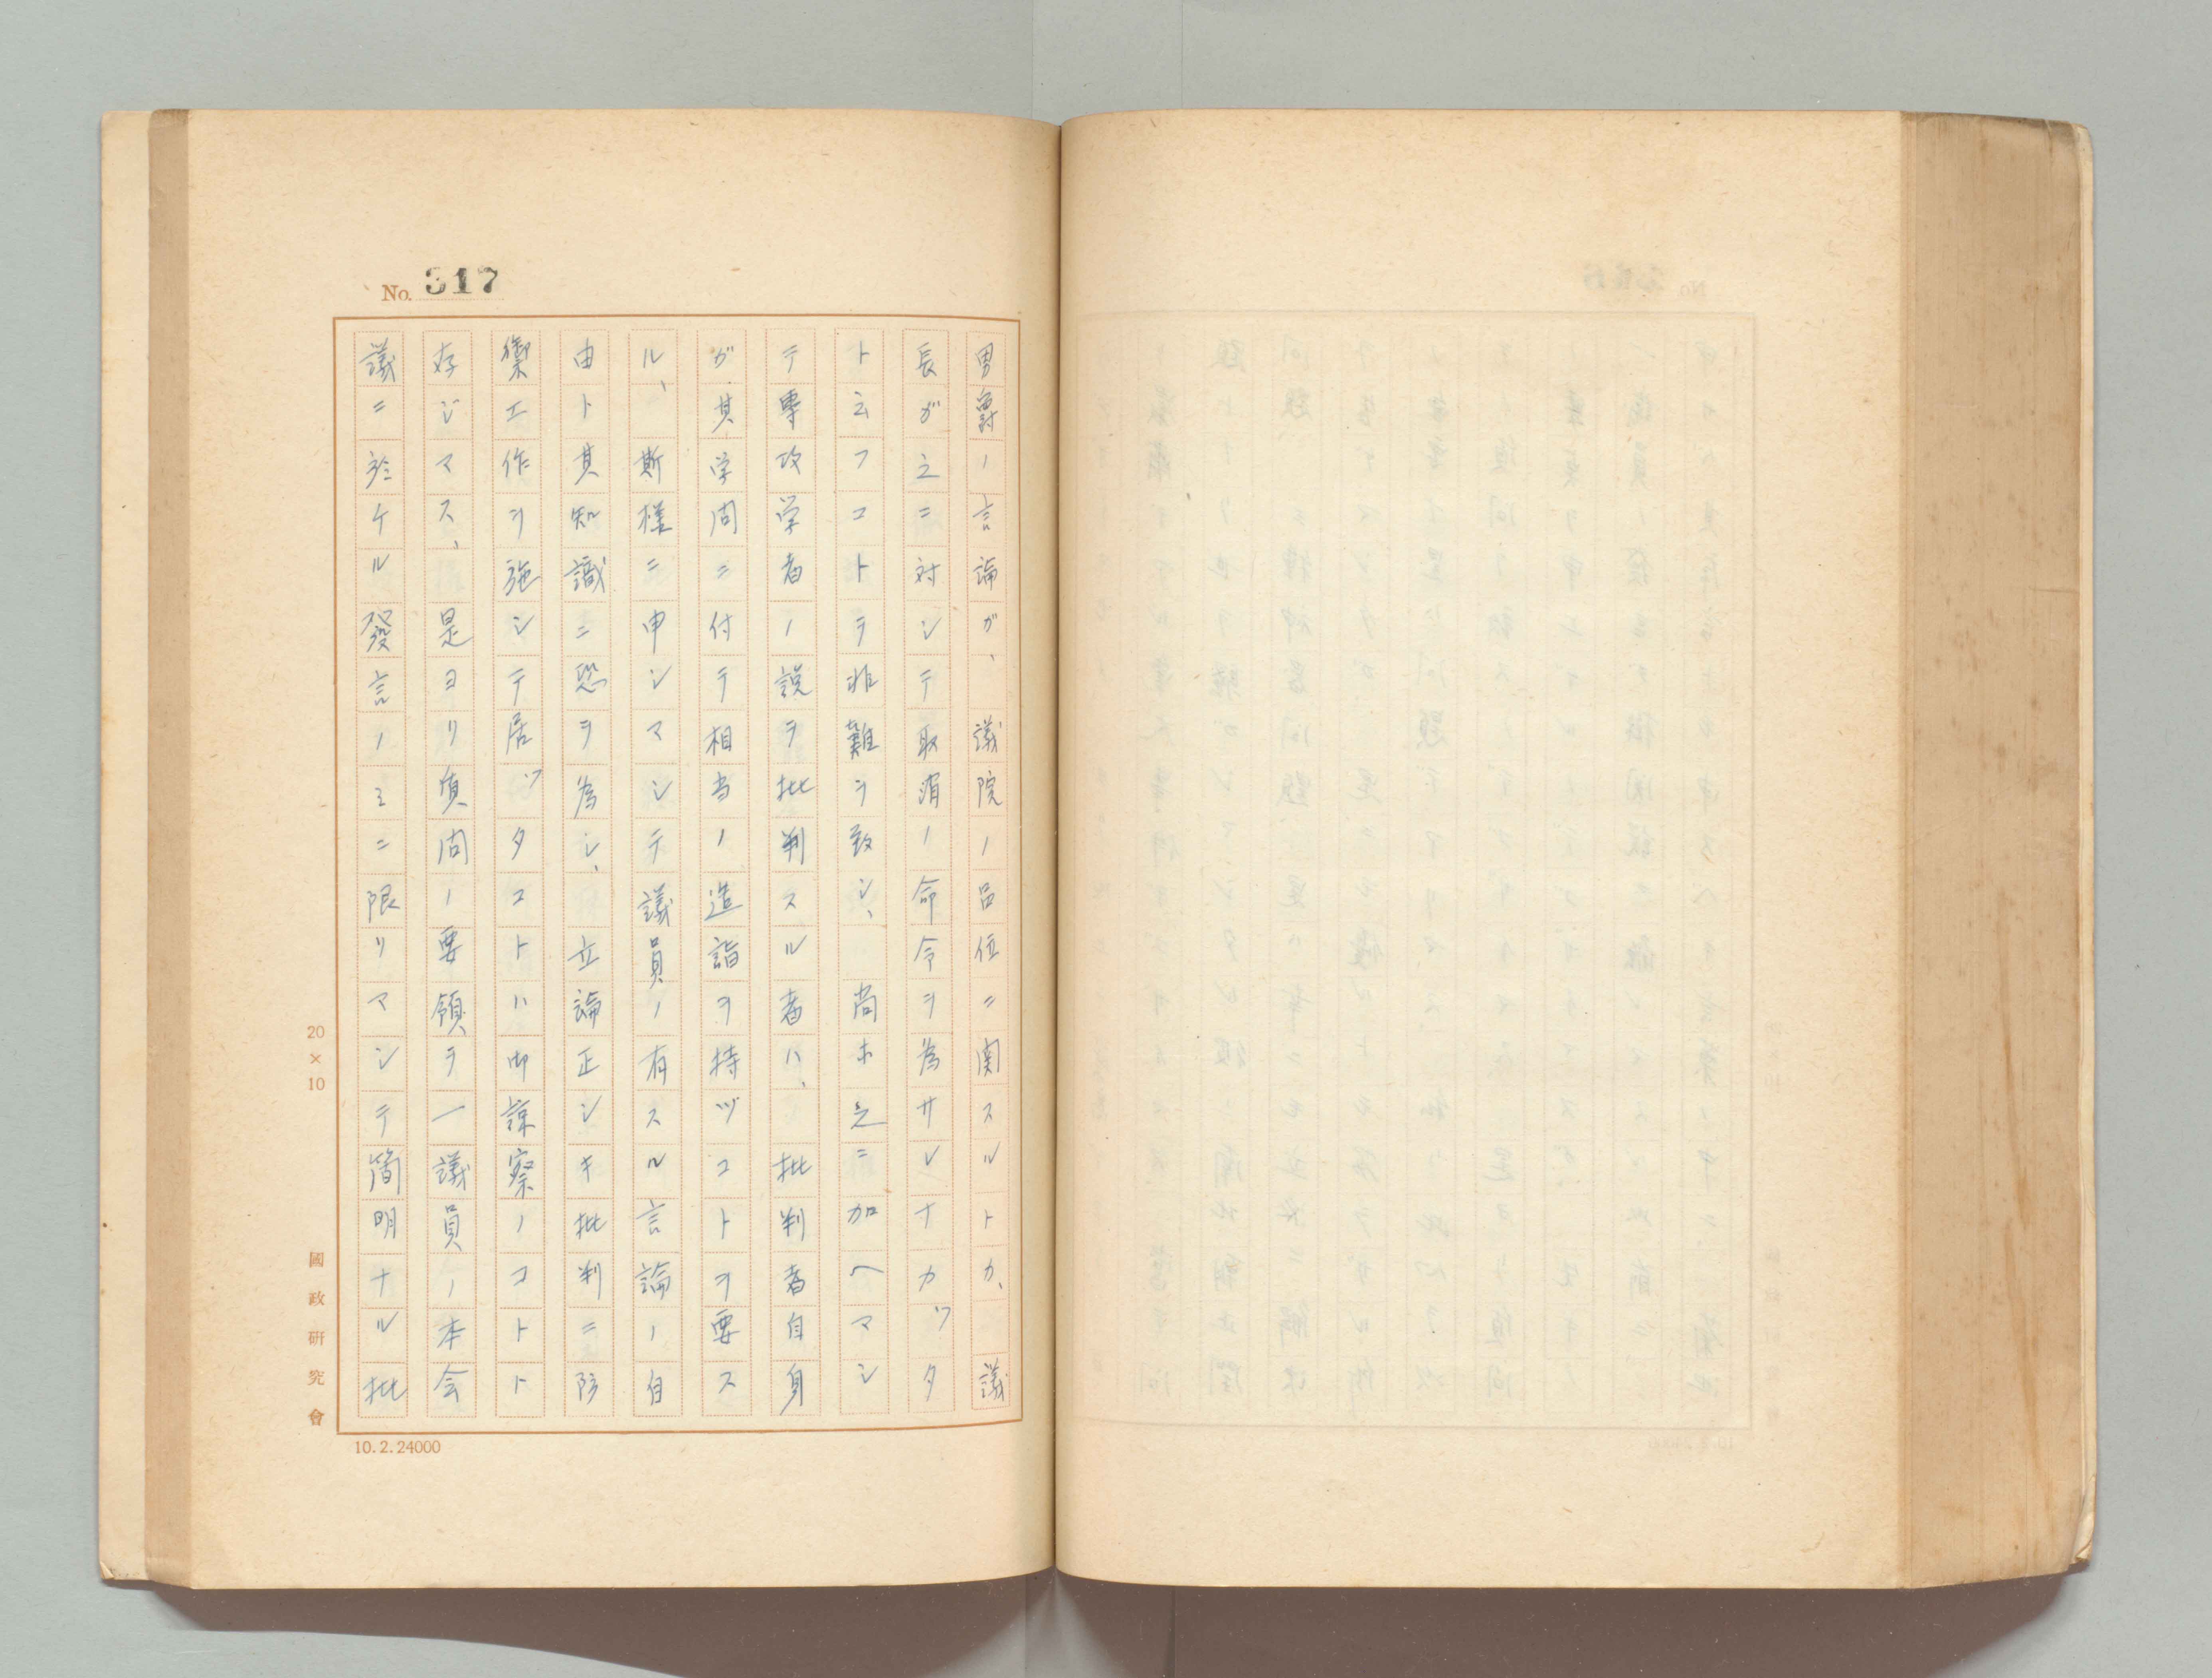 No. 317
男爵ノ言論ガ、議院ノ品位ニ関スルトカ、議
長ガ之ニ対シテ取消ノ命令ヲ為サレナカッタ
ト云フコトヲ非難ヲ致シ、尚ホ之ニ加ヘマシ
テ専攻学者ノ説ヲ批判スル者ハ、批判者自身
ガ其学問ニ付テ相当ノ造詣ヲ持ツコトヲ要ス
ル、斯様ニ申シマシテ議員ノ有スル言論ノ自
由ト其知識ニ恐ヲ為シ、立論正シキ批判ニ防
禦工作ヲ施シテ居ッタコトハ御諒察ノコトト
存ジマス、是ヨリ質問ノ要領ヲ一議員ノ本会
議ニ於ケル発言ノミニ限リマシテ簡明ナル批
20×10
國政研究會
10.2.24000